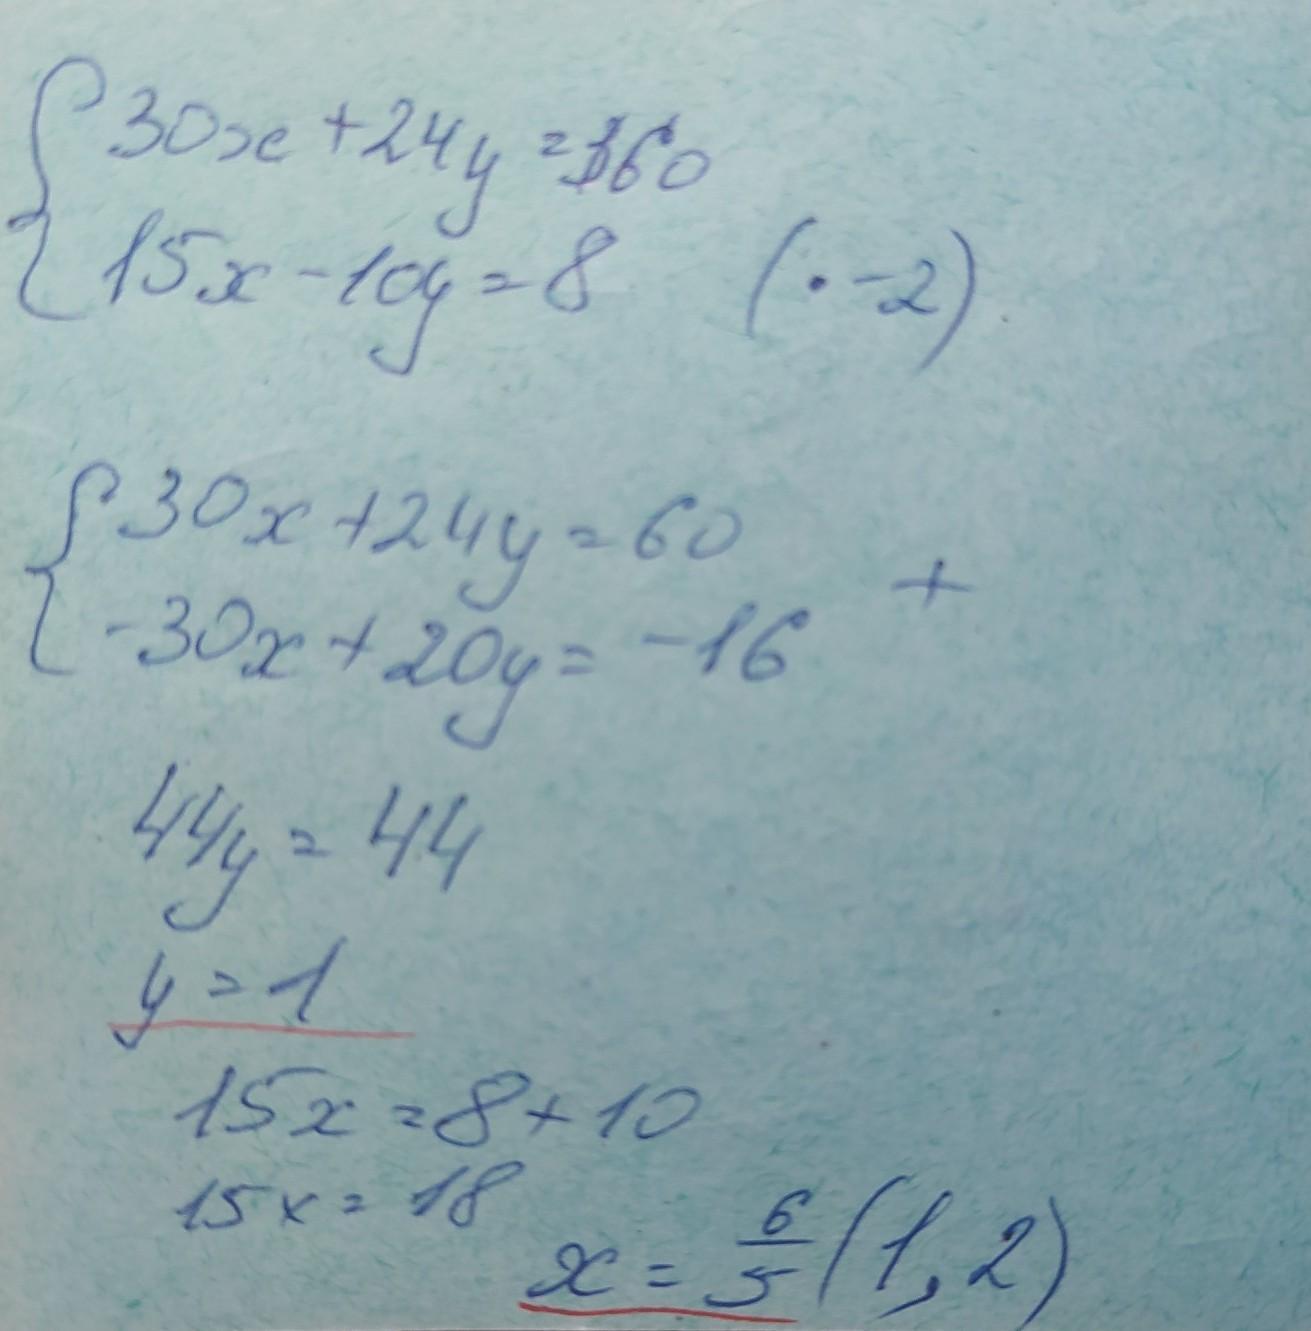 30x + 24y = 60
15x - 10y = 8 (· -2)
30x + 24y = 60
-30x + 20y = -16 +
44y = 44
y = 1
15x = 8 + 10
15x = 18
x = 6/5 (1,2)